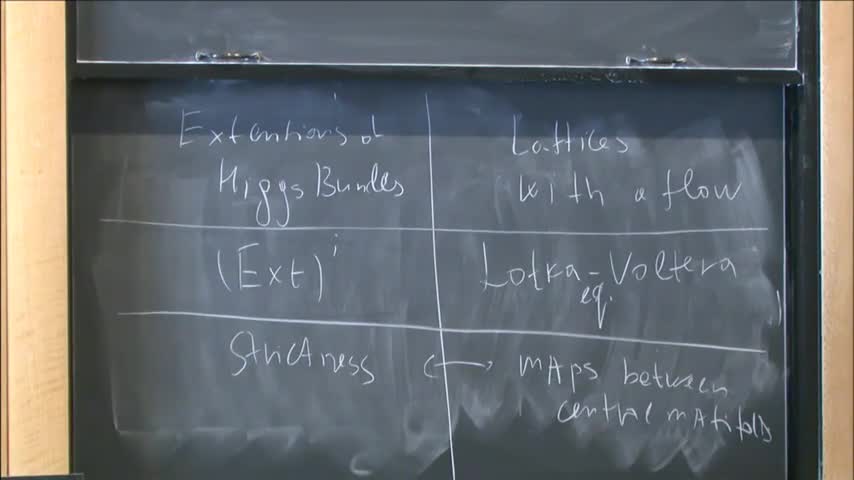 Extentions of
Higgs Bundles
Lattices
with a flow
(Ext)^i
Lotka-Voltera
eq.
Strictness
↔ maps between
central